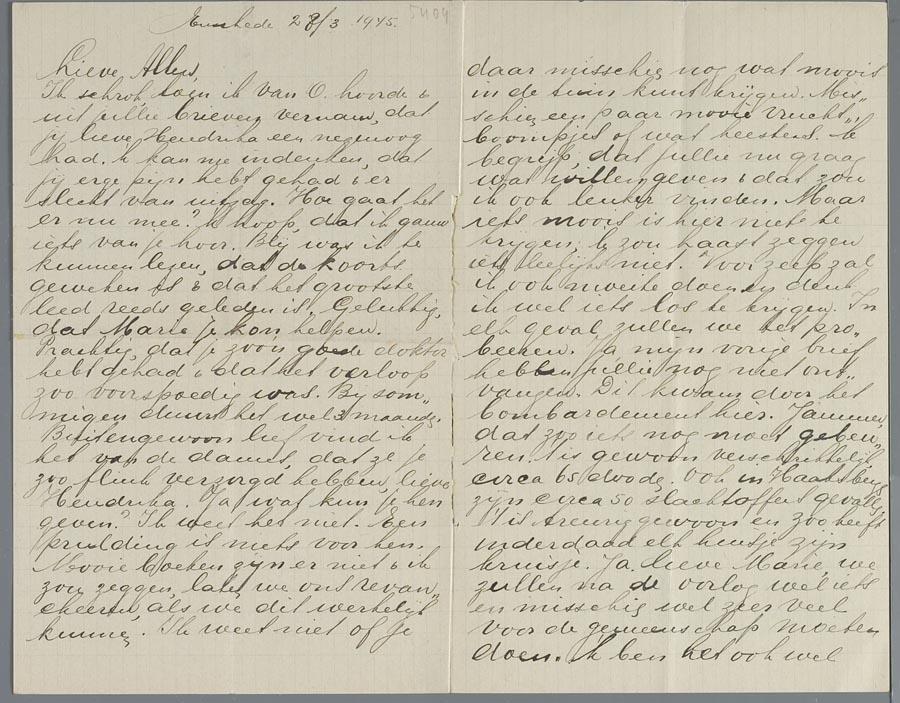 Enschede 28/3 1945.
5404
Lieve Allen,
Ik schrok toen ik van O. hoorde &
uit jullie brieven vernam, dat
jij lieve Hendrika een negenoog
had. Ik kan me indenken, dat
jij erge pijn hebt gehad & er
slecht van uitzag. Hoe gaat het
er nu mee? Ik hoop, dat ik gauw
iets van je hoor. Blij was ik te
kunnen lezen, dat de koorts
geweken is & dat het grootste
leed reeds geleden is. Gelukkig,
dat Marie je kon helpen.
Prachtig, dat je zoo'n goede doktor
hebt gehad & dat het verloop
zoo voorspoedig was. Bij som„
migen duurt het wel 3 maande.
Buitengewoon lief vind ik
het van de dames, dat ze je
zoo flink verzorgd hebben, lieve
Hendrika. Ja wat kun je hen
geven? Ik weet het niet. Een
prulding is niets voor hen.
Mooie boeken zijn er niet & ik
zou zeggen, laten we ons revan„
cheeren, als we dit werkelijk
kunnen. Ik weet niet of je
daar misschien nog wat moois
in de tuin kunt krijgen. Mis„
schien een paar mooie vrucht„
boompjes of wat heesters. Ik
begrijp, dat jullie nu graag
wat willen geven & dat zou
ik ook leuker vinden. Maar
iets moois is hier niet te
krijgen, ik zou haast zeggen
iets leelijks niet. Voor zeep zal
ik ook moeite doen en denk
ik wel iets los te krijgen. In
elk geval zullen we het pro„
beeren. Ja mijn vorige brief
hebben jullie nog niet ont„
vangen. Dit kwam door het
bombardement hier. Jammer,
dat zoo iets nog moet gebeu„
ren. 't is gewoon verschrikkelijk
circa 65 doode. Ook in Haaksberg
zijn circa 50 slachtoffers gevallen
't Is treurig gewoon en zoo heeft
inderdaad elk huisje zijn
kruisje. Ja lieve Marie, we
zullen na de oorlog wel iets
en misschien wel zeer veel
voor de gemeenschap moeten
doen. Ik ben het ook wel